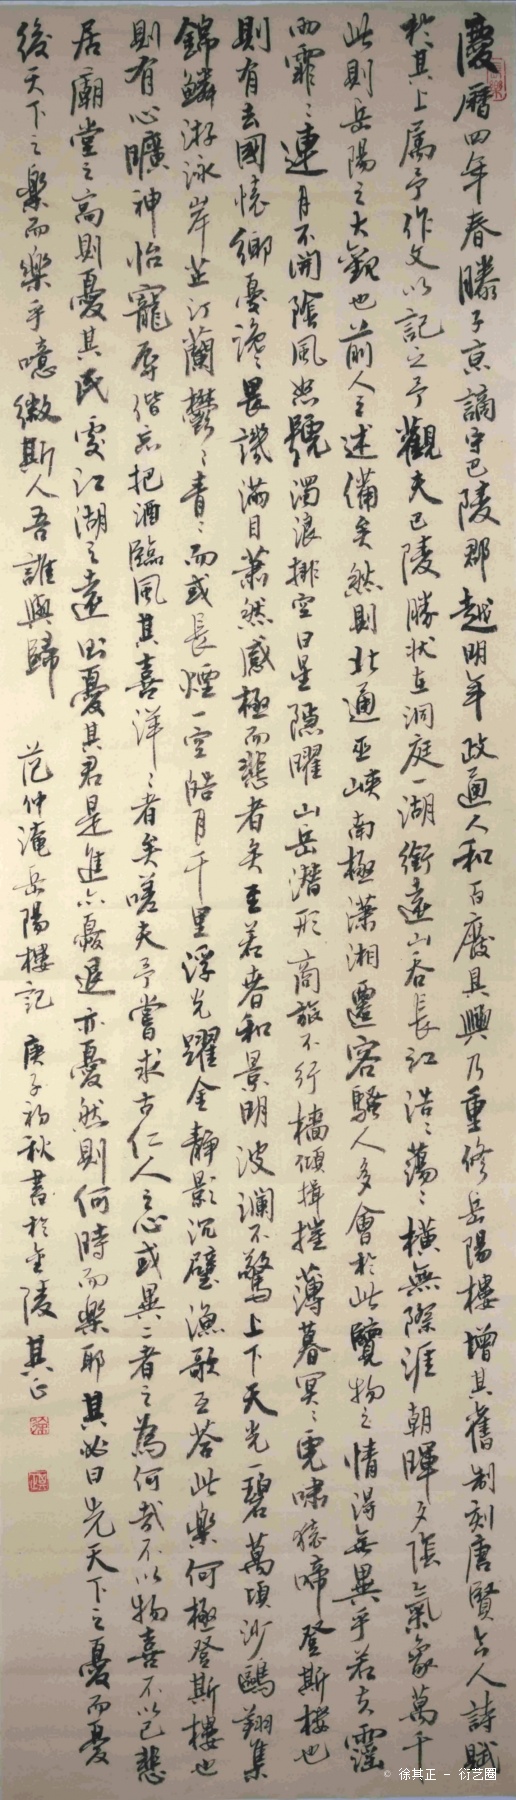 慶曆四年春滕子京謫守巴陵郡越明年政通人和百廢具興乃重修岳陽樓增其舊制刻唐賢今人詩賦
於其上屬予作文以記之予觀夫巴陵勝狀在洞庭一湖銜遠山吞長江浩〻蕩〻橫無際涯朝暉夕陰氣象萬千
此則岳陽之大觀也前人之述備矣然則北通巫峽南極瀟湘遷客騷人多會於此覽物之情得無異乎若夫霪
雨霏〻連月不開陰風怒號濁浪排空日星隱曜山岳潛形商旅不行檣傾楫摧薄暮冥〻虎嘯猿啼登斯樓也
則有去國懷鄉憂讒畏譏滿目蕭然感極而悲者矣至若春和景明波瀾不驚上下天光一碧萬頃沙鷗翔集
錦鱗游泳岸芷汀蘭鬱〻青〻而或長煙一空皓月千里浮光躍金靜影沉璧漁歌互答此樂何極登斯樓也
則有心曠神怡寵辱偕忘把酒臨風其喜洋〻者矣嗟夫予嘗求古仁人之心或異二者之為何哉不以物喜不以己悲
居廟堂之高則憂其民處江湖之遠則憂其君是進亦憂退亦憂然則何時而樂耶其必曰先天下之憂而憂
後天下之樂而樂乎噫微斯人吾誰與歸 范仲淹岳陽樓記 庚子初秋書於金陵其正
© 徐其正 - 衍艺圈